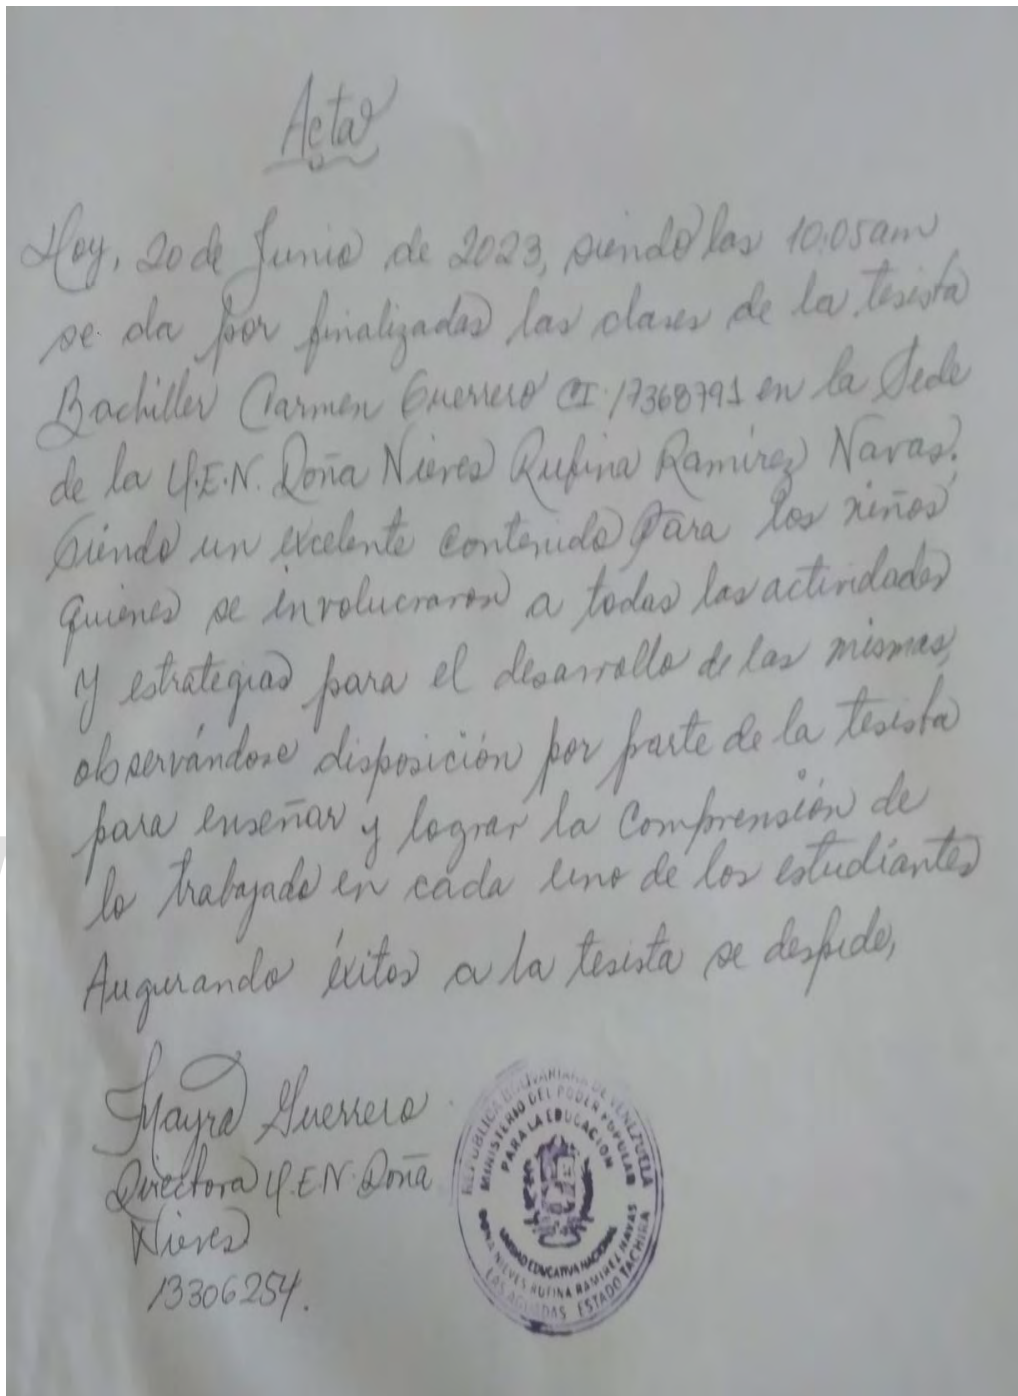 Acta
Hoy, 20 de Junio de 2023, siendo las 10:05am
se da por finalizadas las clases de la tesista
Bachiller Carmen Guerrero CI. 17368791 en la Sede
de la U.E.N. Doña Nieves Rufina Ramírez Navas.
Siendo un excelente contenido para los niños
quienes se involucraron a todas las actividades
y estrategias para el desarrollo de las mismas,
observándose disposición por parte de la tesista
para enseñar y lograr la comprensión de
lo trabajado en cada uno de los estudiantes
Augurando éxitos a la tesista se despide,
Mayra Guerrero
Directora U.E.N. Doña
Nieves
13306254.
REPÚBLICA BOLIVARIANA DE VENEZUELA
MINISTERIO DEL PODER POPULAR
PARA LA EDUCACION
UNIDAD EDUCATIVA NACIONAL
DOÑA NIEVES RUFINA RAMIREZ NAVAS
LAS AGUADAS ESTADO TACHIRA